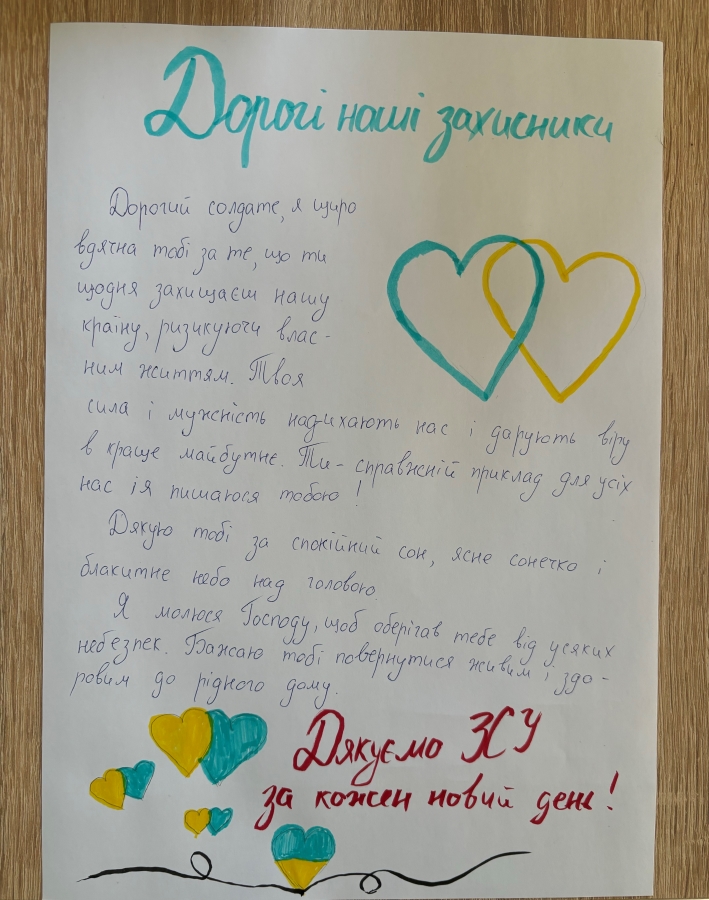 Дорогі наші захисники
Дорогий солдате, я щиро
вдячна тобі за те, що ти
щодня захищаєш нашу
країну, ризикуючи влас-
ним життям. Твоя
сила і мужність надихають нас і дарують віру
в краще майбутнє. Ти - справжній приклад для усіх
нас і я пишаюся тобою!
Дякую тобі за спокійний сон, ясне сонечко і
блакитне небо над головою.
Я молюся Господу, щоб оберігав тебе від усяких
небезпек. Бажаю тобі повернутися живим і здо-
ровим до рідного дому.
Дякуємо ЗСУ
за кожен новий день!